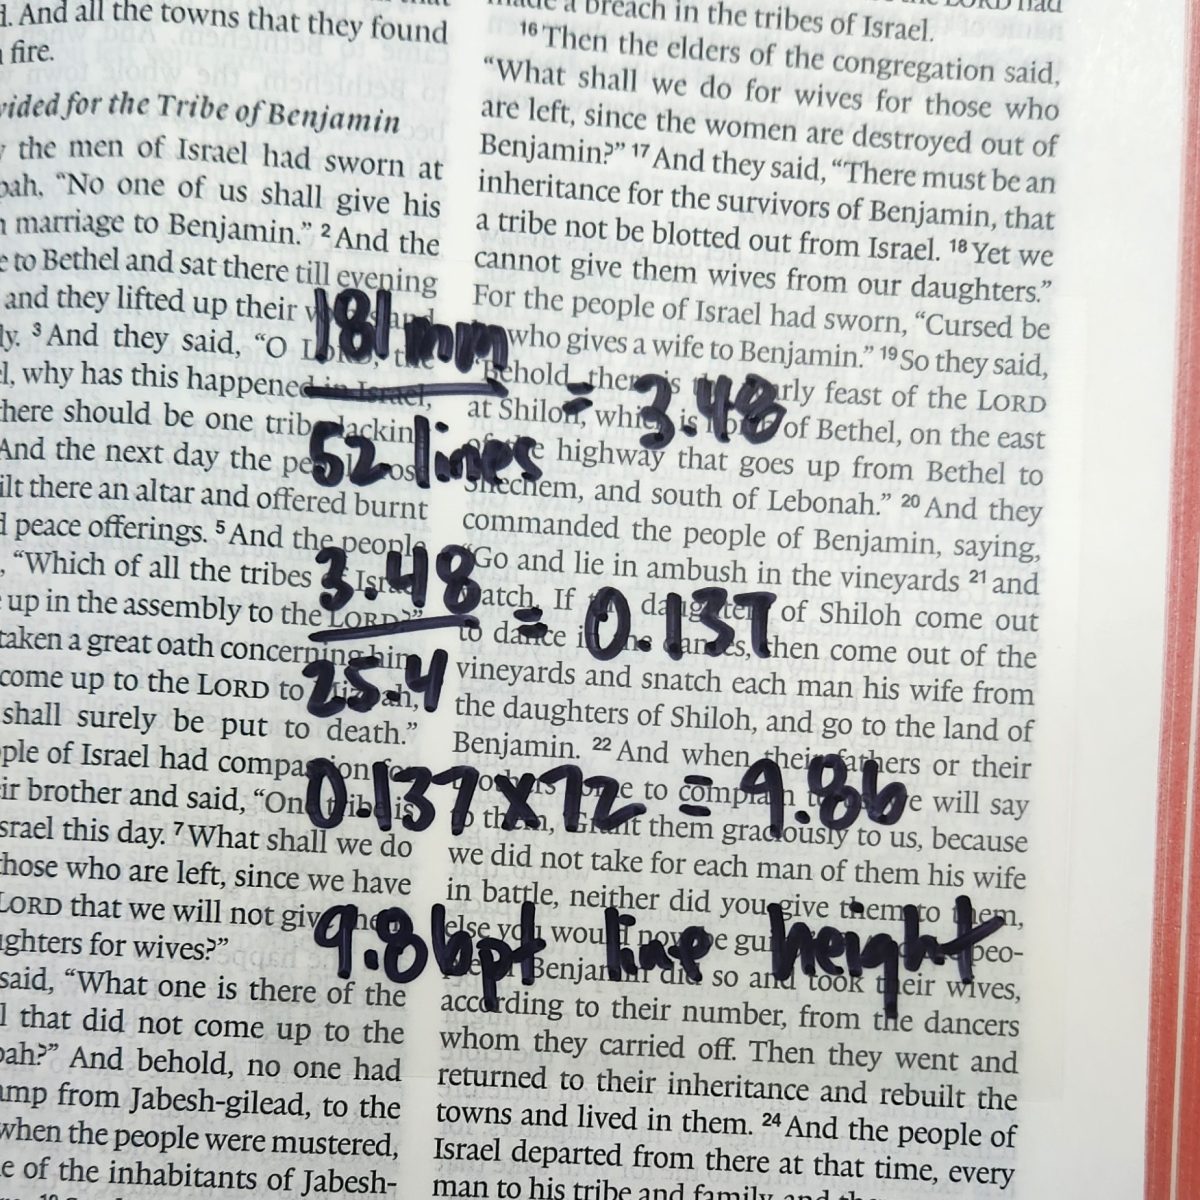 . And all the towns that they found
fire.
vided for the Tribe of Benjamin
the men of Israel had sworn at
pah, “No one of us shall give his
marriage to Benjamin.” 2 And the
e to Bethel and sat there till evening
and they lifted up their
ly. 3 And they said, “O LORD, the
l, why has this happened in Israel,
here should be one tribe lackin
And the next day the
ilt there an altar and offered burnt
d peace offerings. 5 And the people
, “Which of all the tribes
up in the assembly to the LORD?”
taken a great oath concerning him
come up to the LORD to
shall surely be put to death.”
ple of Israel had compassion for
ir brother and said, “One tribe is
srael this day. 7 What shall we do
hose who are left, since we have
LORD that we will not give them
ghters for wives?”
said, “What one is there of the
l that did not come up to the
pah?” And behold, no one had
amp from Jabesh-gilead, to the
when the people were mustered,
e of the inhabitants of Jabesh-
made a breach in the tribes of Israel.
16 Then the elders of the congregation said,
“What shall we do for wives for those who
are left, since the women are destroyed out of
Benjamin?” 17 And they said, “There must be an
inheritance for the survivors of Benjamin, that
a tribe not be blotted out from Israel. 18 Yet we
cannot give them wives from our daughters.”
For the people of Israel had sworn, “Cursed be
who gives a wife to Benjamin.” 19 So they said,
“Behold, there is the yearly feast of the LORD
at Shiloh, which is north of Bethel, on the east
of the highway that goes up from Bethel to
Shechem, and south of Lebonah.” 20 And they
commanded the people of Benjamin, saying,
“Go and lie in ambush in the vineyards 21 and
watch. If the daughters of Shiloh come out
to dance in the dances, then come out of the
vineyards and snatch each man his wife from
the daughters of Shiloh, and go to the land of
Benjamin. 22 And when their fathers or their
come to complain to us, we will say
to them, ‘Grant them graciously to us, because
we did not take for each man of them his wife
in battle, neither did you give them to them,
else you would now be guilty.’” peo-
Benjamin did so and took their wives,
according to their number, from the dancers
whom they carried off. Then they went and
returned to their inheritance and rebuilt the
towns and lived in them. 24 And the people of
Israel departed from there at that time, every
man to his tribe and family, and
181mm
52 lines
= 3.48
3.48
25.4
= 0.137
0.137 x 72 = 9.86
9.86pt line height